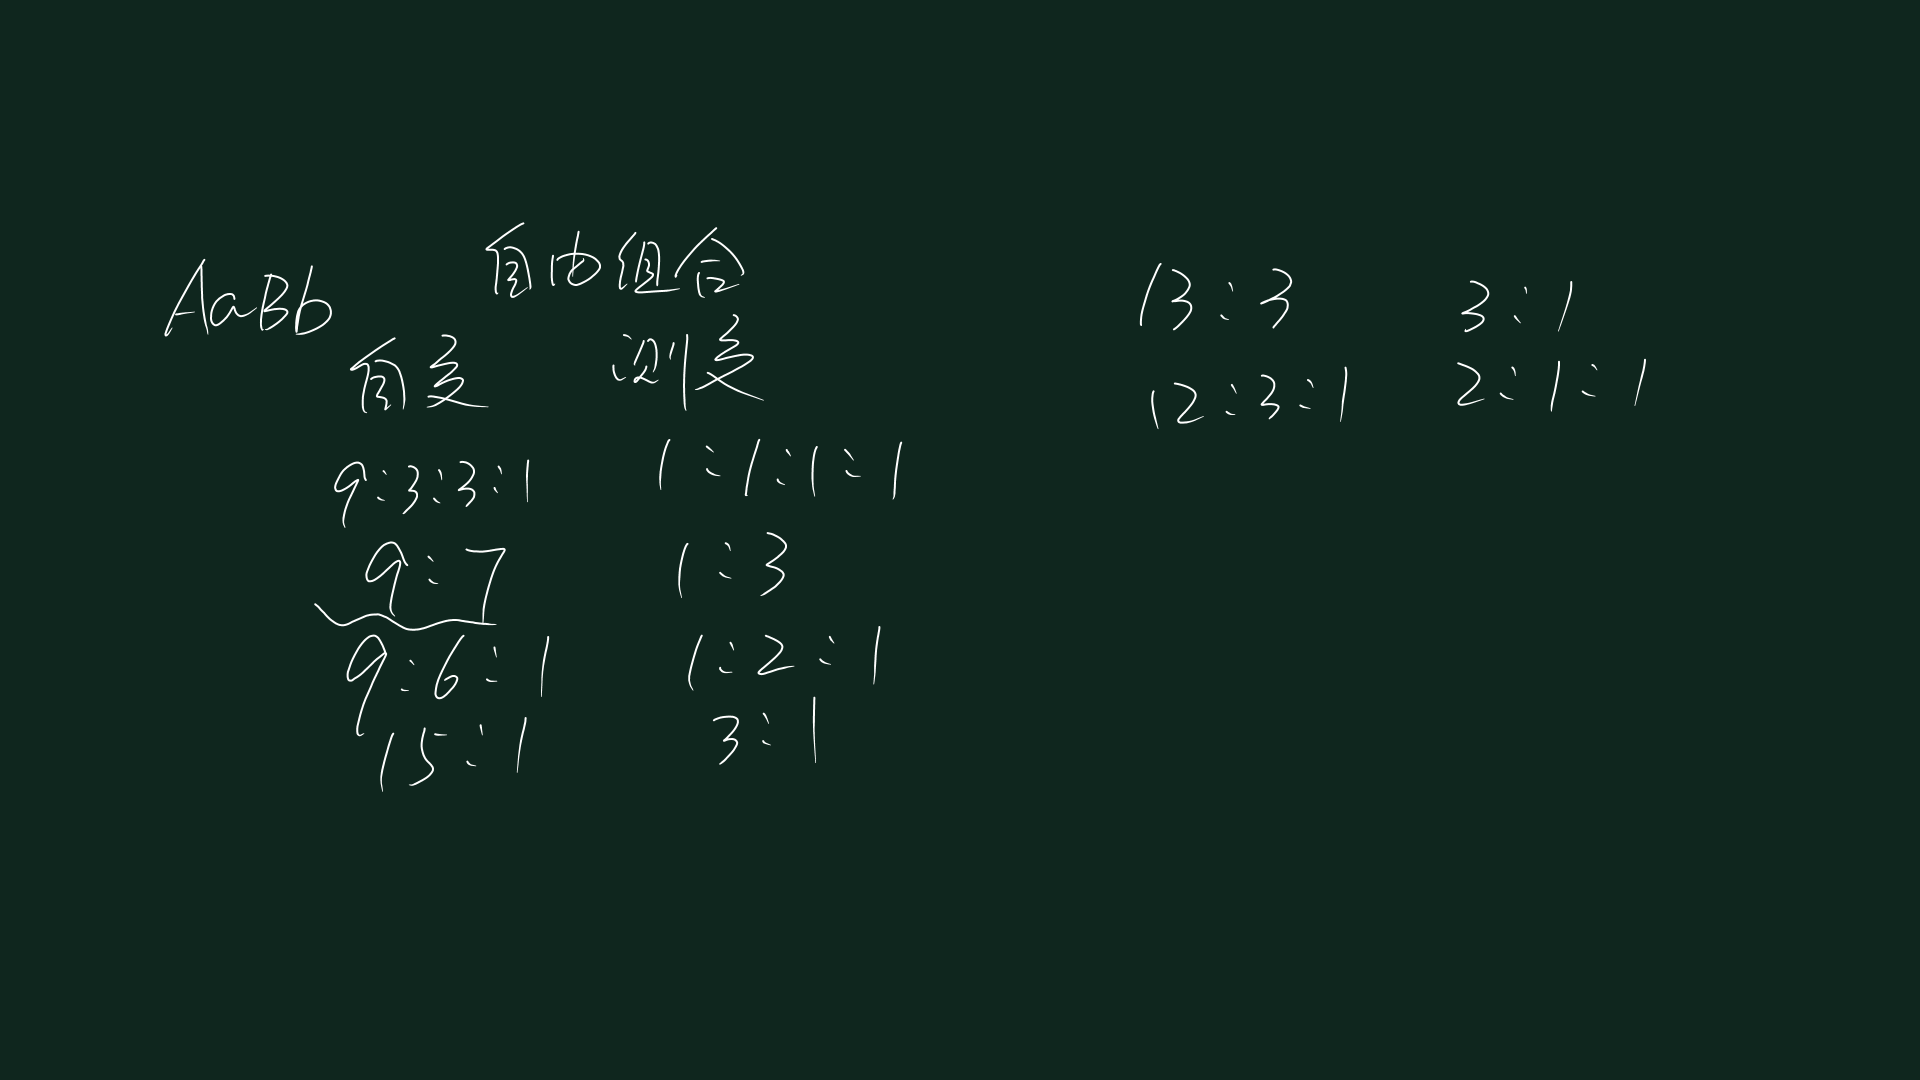 AaBb 自由组合
自交 测交
9:3:3:1 1:1:1:1
9:7 1:3
9:6:1 1:2:1
15:1 3:1
13:3 3:1
12:3:1 2:1:1